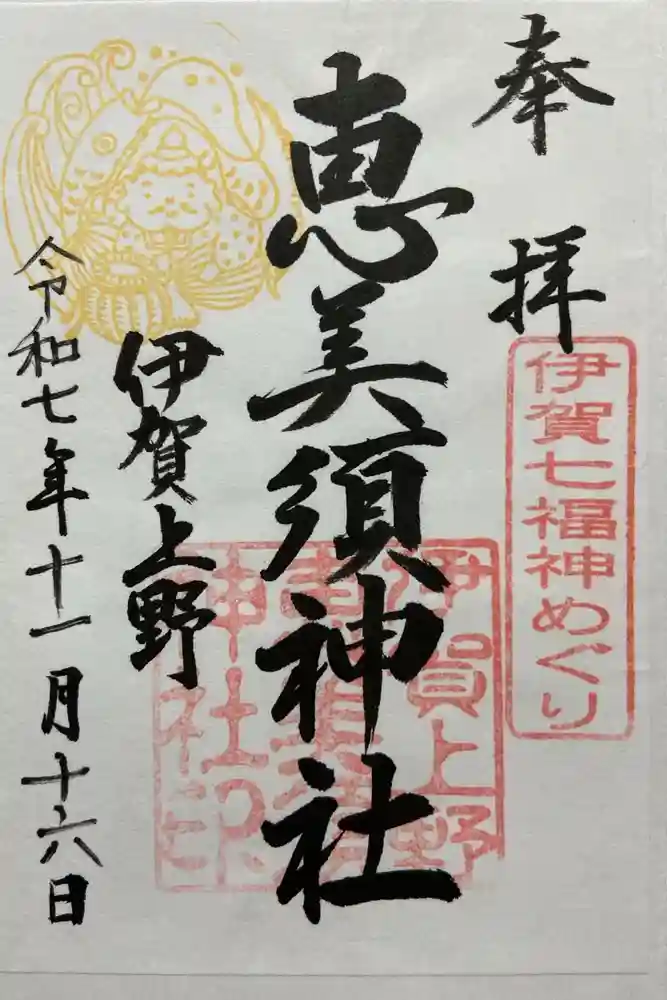 奉拝
伊賀七福神めぐり
恵美須神社
伊賀上野
恵美須
神社印
伊賀上野
令和七年十一月十六日